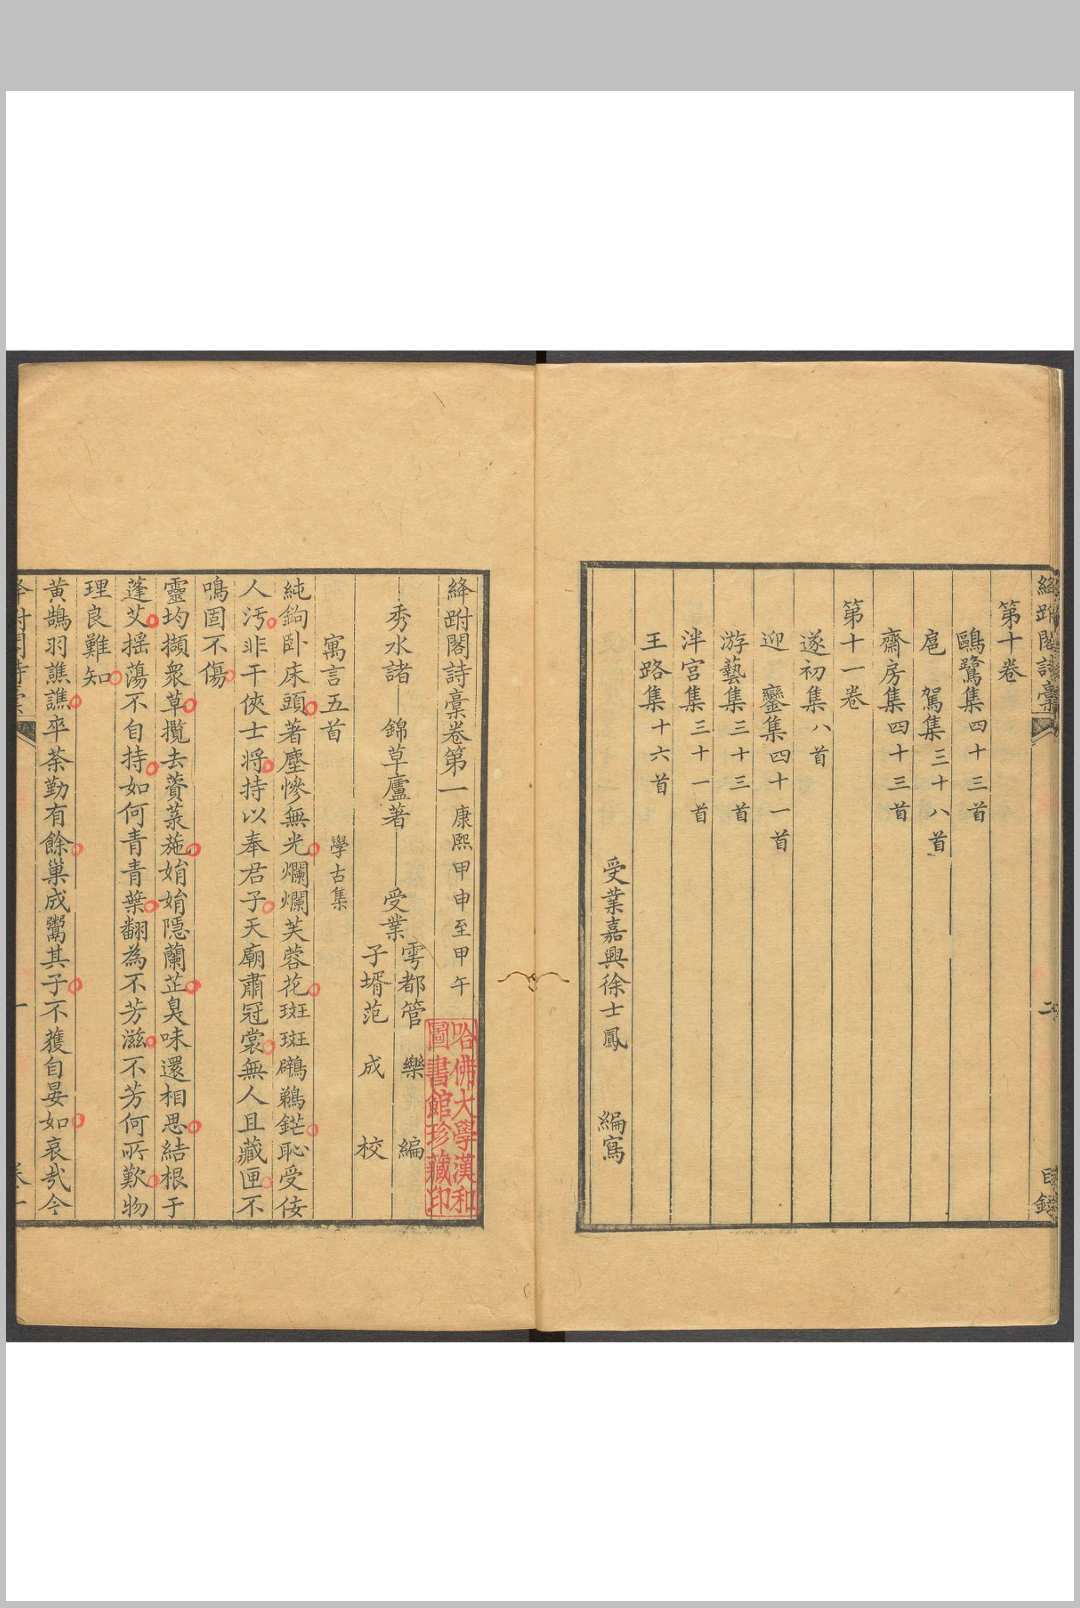 絳跗閣詩槀
二
目錄
第十卷
鷗鷺集四十三首
扈駕集三十八首
齋房集四十三首
第十一卷
遂初集八首
迎鑾集四十一首
游藝集三十三首
泮宮集三十一首
王路集十六首
受業嘉興徐士鳳編寫
絳跗閣詩槀卷第一康熙甲申至甲午
秀水諸錦草廬著
受業
雩都管樂編
子壻范成校
寓言五首
學古集
純鉤卧床頭著塵慘無光爛爛芙蓉花斑斑鸊鵜鋩恥受侫
人汚非干俠士將持以奉君子天廟肅冠裳無人且藏匣不
鳴固不傷
靈均擷衆草攬去薋菉葹娋娋隱蘭芷臭味還相思結根于
蓬艾揺蕩不自持如何青青葉翻為不芳滋不芳何所歎物
理良難知
黃鵠羽譙譙卒荼勤有餘巢成鬻其子不獲自晏如哀㢤今
哈佛大學漢和圖書館珍藏印